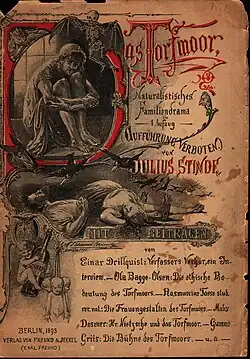 Das Torfmoor,
Naturalistisches
Familiendrama
1 Aufzug
(AUFFÜHRUNG VERBOTEN)
VON
JULIUS STINDE,
MIT BEITRÄGEN
von
Einar Drillquist: Verfassers Verhör, ein In-
terview. — Ola Bagge-Olsen: Die ethische Be-
deutung des Torfmoors. — Rasmonine Tórse stud.
rer. nat.: Die Frauengestalten des Torfmoors. — Mads
Dosmer: Hr. Nietzsche und das Torfmoor. —
Griis: Die Bühne des Torfmoors. — u. a. —
BERLIN, 1893
VERLAG VON FREUND & JECKEL
(CARL FREUND)